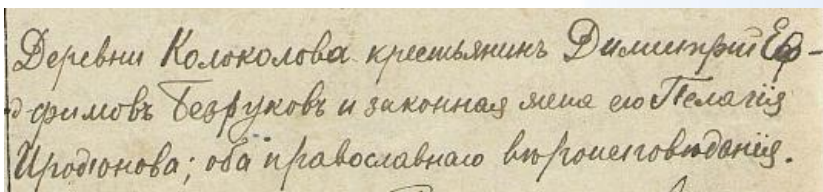 Деревни Колоколова крестьянинъ Димитрий Еф-
фимовъ Безруковъ и законная жена его Пелагія
Иродіонова; оба православнаго вѣроисповѣданія.